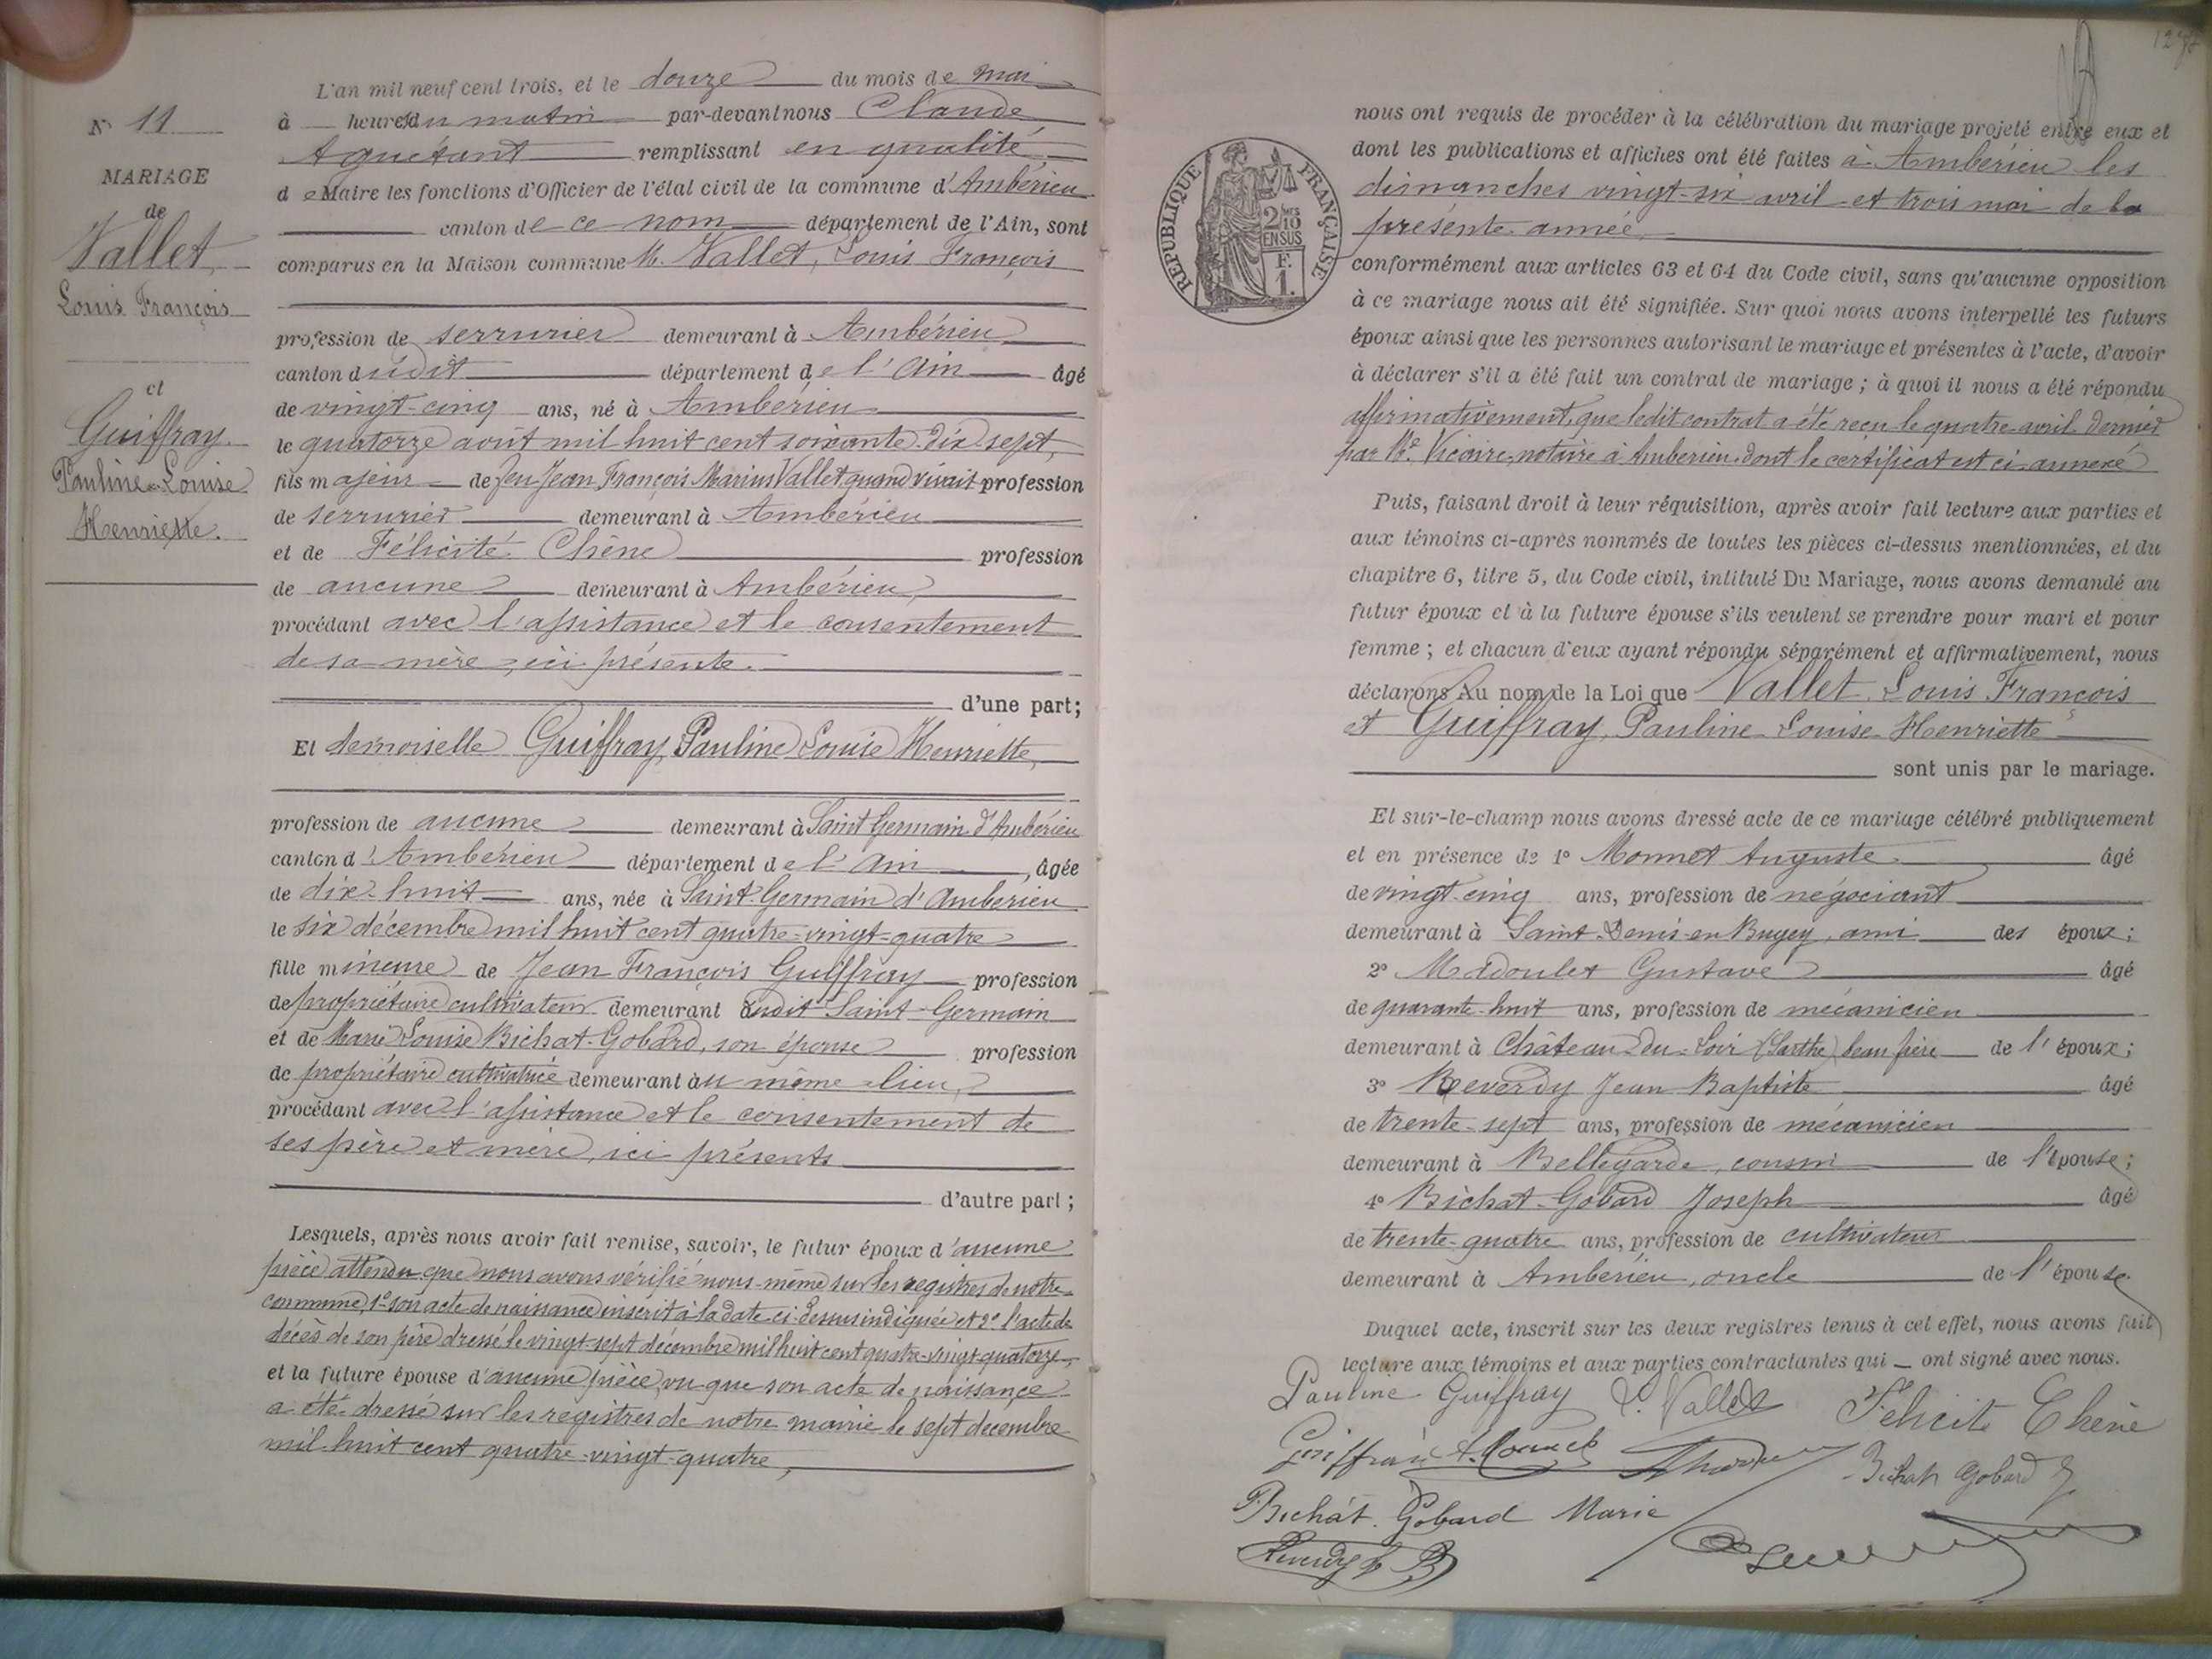 N° 11
MARIAGE
de
Vallet,
Louis François
et
Guiffray
Pauline-Louise
Henriette.
L'an mil neuf cent trois, et le douze du mois de mai
à heures du matin par-devant nous Claude
Aguétant remplissant en qualité
de Maire les fonctions d'Officier de l'état civil de la commune d'Ambérieu
canton de ce nom département de l'Ain, sont
comparus en la Maison commune M. Vallet, Louis François
profession de serrurier demeurant à Ambérieu
canton dudit département de l'Ain âgé
de vingt-cinq ans, né à Ambérieu
le quatorze août mil huit cent soixante-dix-sept,
fils majeur de feu Jean François Marius Vallet quand vivait profession
de serrurier demeurant à Ambérieu
et de Félicité Chêne profession
de aucune demeurant à Ambérieu,
procédant avec l'assistance et le consentement
de sa mère, ici présente.
d'une part;
Et demoiselle Guiffray, Pauline Louise Henriette,
profession de aucune demeurant à Saint Germain d'Ambérieu
canton d'Ambérieu département de l'Ain, âgée
de dix-huit ans, née à Saint-Germain d'Ambérieu
le six décembre mil huit cent quatre-vingt-quatre
fille mineure de Jean François Guiffray profession
de propriétaire cultivateur demeurant audit Saint-Germain
et de Marie Louise Bichat-Gobard, son épouse profession
de propriétaire cultivatrice demeurant au même lieu,
procédant avec l'assistance et le consentement de
ses père et mère, ici présents
d'autre part;
Lesquels, après nous avoir fait remise, savoir, le futur époux d'aucune
pièce attendu que nous avons vérifié nous-même sur les registres de notre
commune, 1° son acte de naissance inscrit à la date ci-dessus indiquée et 2° l'acte de
décès de son père dressé le vingt-sept décembre mil huit cent quatre-vingt-quatorze,
et la future épouse d'aucune pièce, vu que son acte de naissance
a été dressé sur les registres de notre mairie le sept décembre
mil huit cent quatre-vingt-quatre,
RÉPUBLIQUE FRANÇAISE
2/10
EN SUS
F.
1.
nous ont requis de procéder à la célébration du mariage projeté entre eux et
dont les publications et affiches ont été faites à Ambérieu les
dimanches vingt-six avril et trois mai de la
présente année
conformément aux articles 63 et 64 du Code civil, sans qu'aucune opposition
à ce mariage nous ait été signifiée. Sur quoi nous avons interpellé les futurs
époux ainsi que les personnes autorisant le mariage et présentes à l'acte, d'avoir
à déclarer s'il a été fait un contrat de mariage; à quoi il nous a été répondu
affirmativement, que ledit contrat a été reçu le quatre avril dernier
par Me Vicaire, notaire à Ambérieu dont le certificat est ci-annexé
Puis, faisant droit à leur réquisition, après avoir fait lecture aux parties et
aux témoins ci-après nommés de toutes les pièces ci-dessus mentionnées, et du
chapitre 6, titre 5, du Code civil, intitulé Du Mariage, nous avons demandé au
futur époux et à la future épouse s'ils veulent se prendre pour mari et pour
femme; et chacun d'eux ayant répondu séparément et affirmativement, nous
déclarons Au nom de la Loi que Vallet Louis François
et Guiffray, Pauline-Louise-Henriette
sont unis par le mariage.
Et sur-le-champ nous avons dressé acte de ce mariage célébré publiquement
et en présence de 1° Monnet Auguste âgé
de vingt-cinq ans, profession de négociant
demeurant à Saint-Denis-en-Bugey, ami des époux;
2° Madoulet Gustave âgé
de quarante-huit ans, profession de mécanicien
demeurant à Château-du-Loir (Sarthe) beau père de l'époux;
3° Reverdy Jean Baptiste âgé
de trente-sept ans, profession de mécanicien
demeurant à Bellegarde, cousin de l'épouse;
4° Bichat-Gobard Joseph âgé
de trente-quatre ans, profession de cultivateur
demeurant à Ambérieu, oncle de l'épouse.
Duquel acte, inscrit sur les deux registres tenus à cet effet, nous avons fait
lecture aux témoins et aux parties contractantes qui ont signé avec nous.
Pauline Guiffray L. Vallet Félicité Chêne
Guiffray A. Monnet Bichat Gobard J
Bichat. Gobard Marie
Reverdy J B